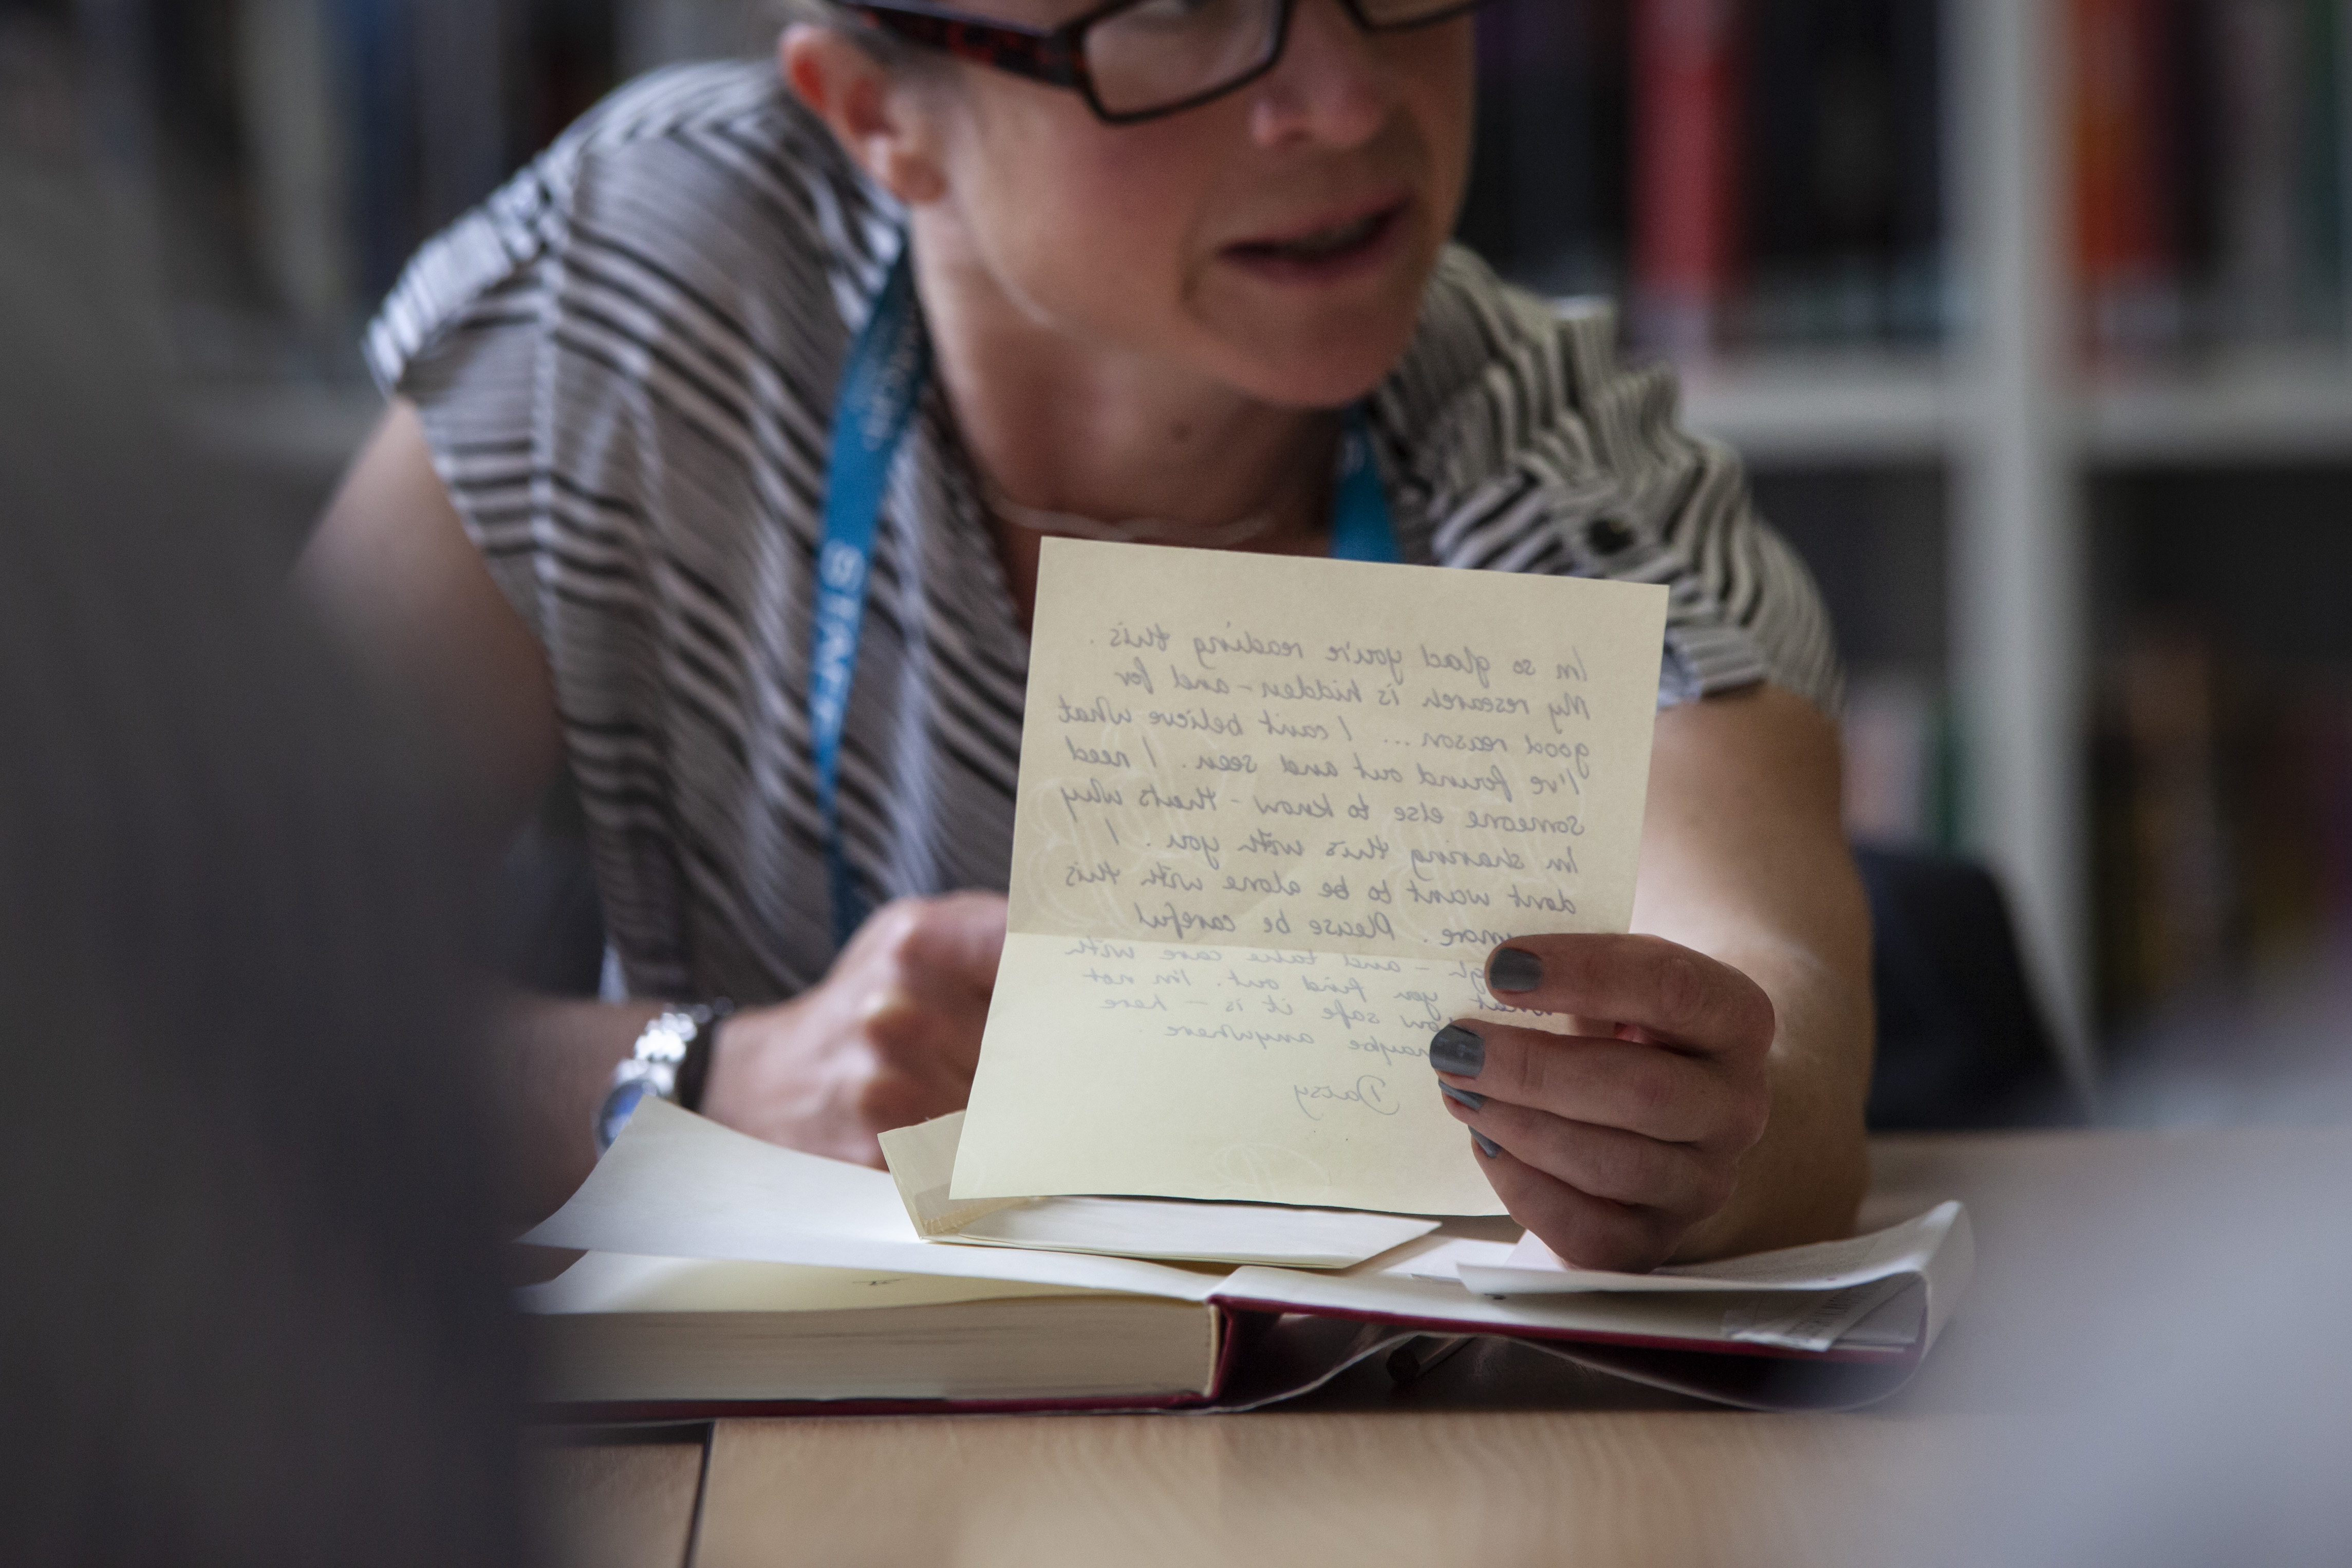 STAFF
Im so glad you're reading this.
My research is hidden - and for
good reason ... I can't believe what
I've found out and seen. I need
someone else to know - that's why
Im sharing this with you. I
dont want to be alone with this
more. Please be careful
- and take care with
what you find out. I'm not
safe it is - here
maybe anywhere
Daisy